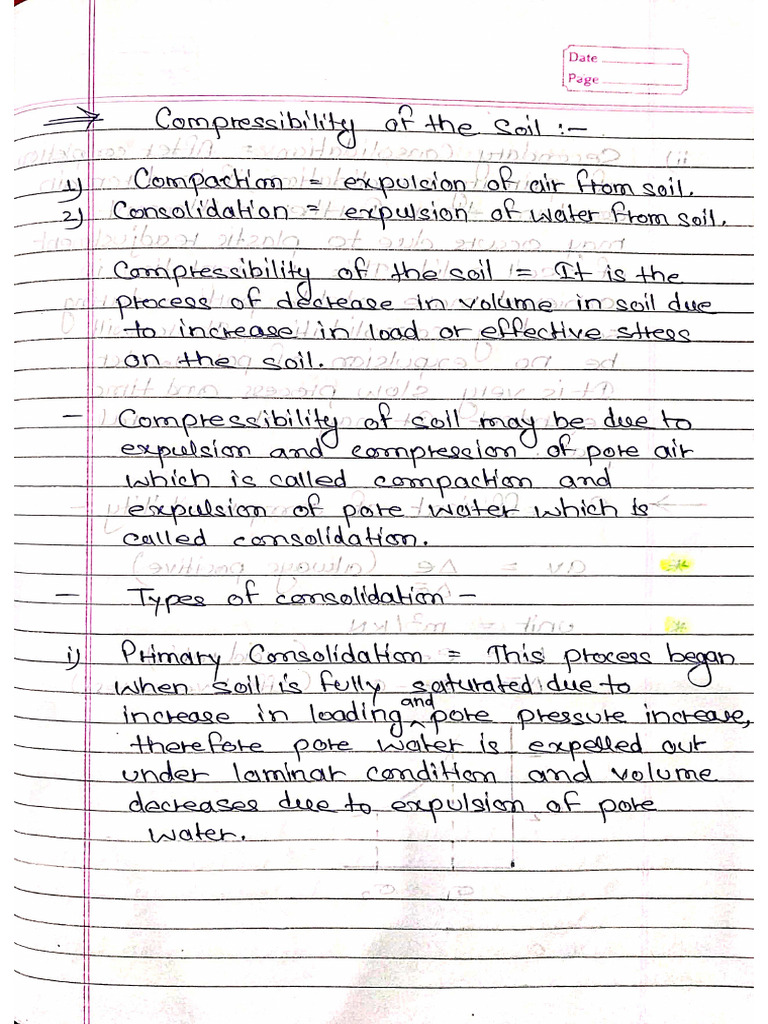 Date
Page
⇒ Compressibility of the soil :-
1) Compaction = expulsion of air from soil.
2) Consolidation = expulsion of water from soil.
Compressibility of the soil = It is the
process of decrease in volume in soil due
to increase in load or effective stress
on the soil.
- Compressibility of soil may be due to
expulsion and compression of pore air
which is called compaction and
expulsion of pore water which is
called consolidation.
- Types of consolidation -
i) Primary Consolidation = This process began
when soil is fully saturated due to
increase in loading and pore pressure increase,
therefore pore water is expelled out
under laminar condition and volume
decreases due to expulsion of pore
water.